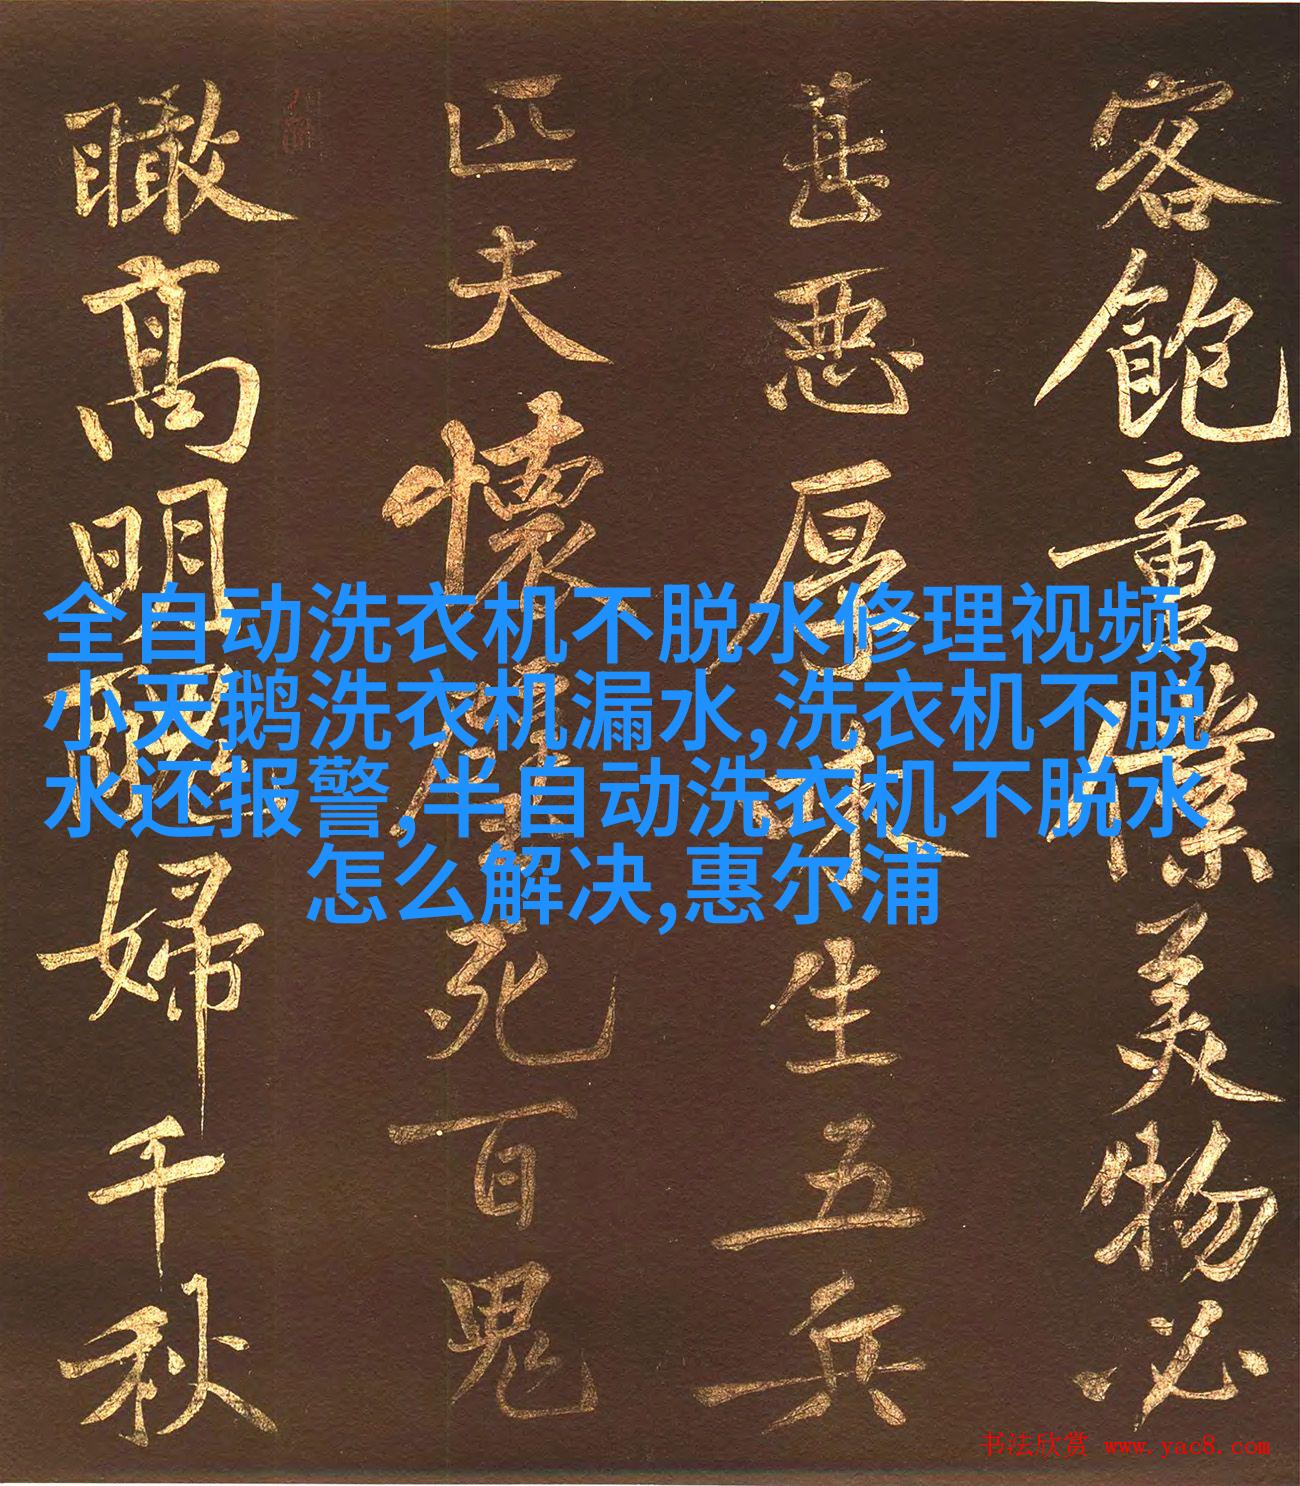 客飽童僕美物必
甚惡厚味生五兵
匹夫懷璧死百鬼
瞰高明醜婦千秋
全自动洗衣机不脱水修理视频,
小天鹅洗衣机漏水,洗衣机不脱
水还报警,半自动洗衣机不脱水
怎么解决,惠尔浦
书法欣赏 www.yac8.com